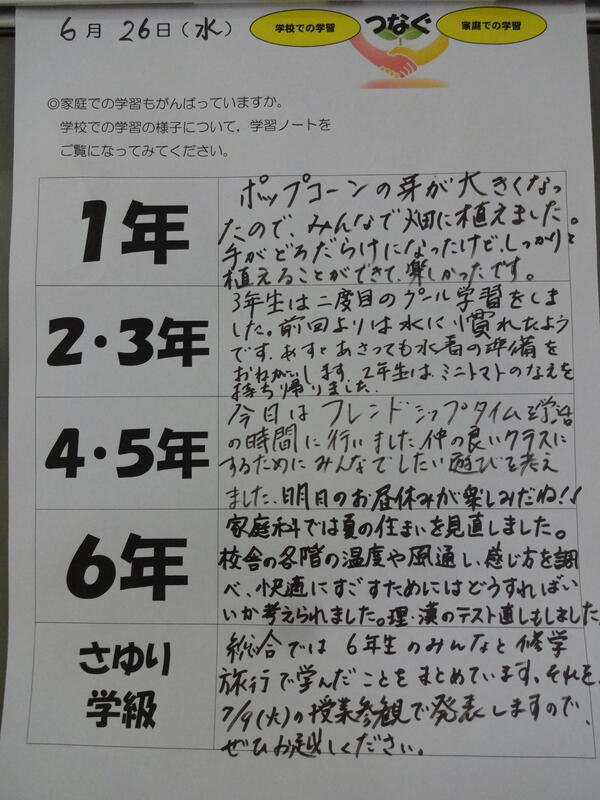 6月 26日(水)
学校での学習 つなぐ 家庭での学習
◎家庭での学習もがんばっていますか。
学校での学習の様子について，学習ノートを
ご覧になってみてください。
1年
ポップコーンの芽が大きくなっ
たので、みんなで畑に植えました。
手がどろだらけになったけど、しっかりと
植えることができて、楽しかったです。
2・3年
3年生は二度目のプール学習をしま
した。前回よりは水に慣れたよう
です。あすとあさっても水着の準備を
おねがいします。2年生は、ミニトマトのなえを
持ち帰りました。
4・5年
今日はフレンドシップタイムを学活
の時間に行いました。仲の良いクラスに
するためにみんなでしたい遊びを考え
ました。明日のお昼休みが楽しみだね!!
6年
家庭科では夏の住まいを見直しました。
校舎の各階の温度や風通し、感じ方を調
べ、快適にすごすためにはどうすればい
いか考えられました。理・漢のテスト直しもしました。
さゆり
学級
総合では6年生のみんなと修学
旅行で学んだことをまとめています。それを、
7/9(火)の授業参観で発表しますので、
ぜひお越しください。